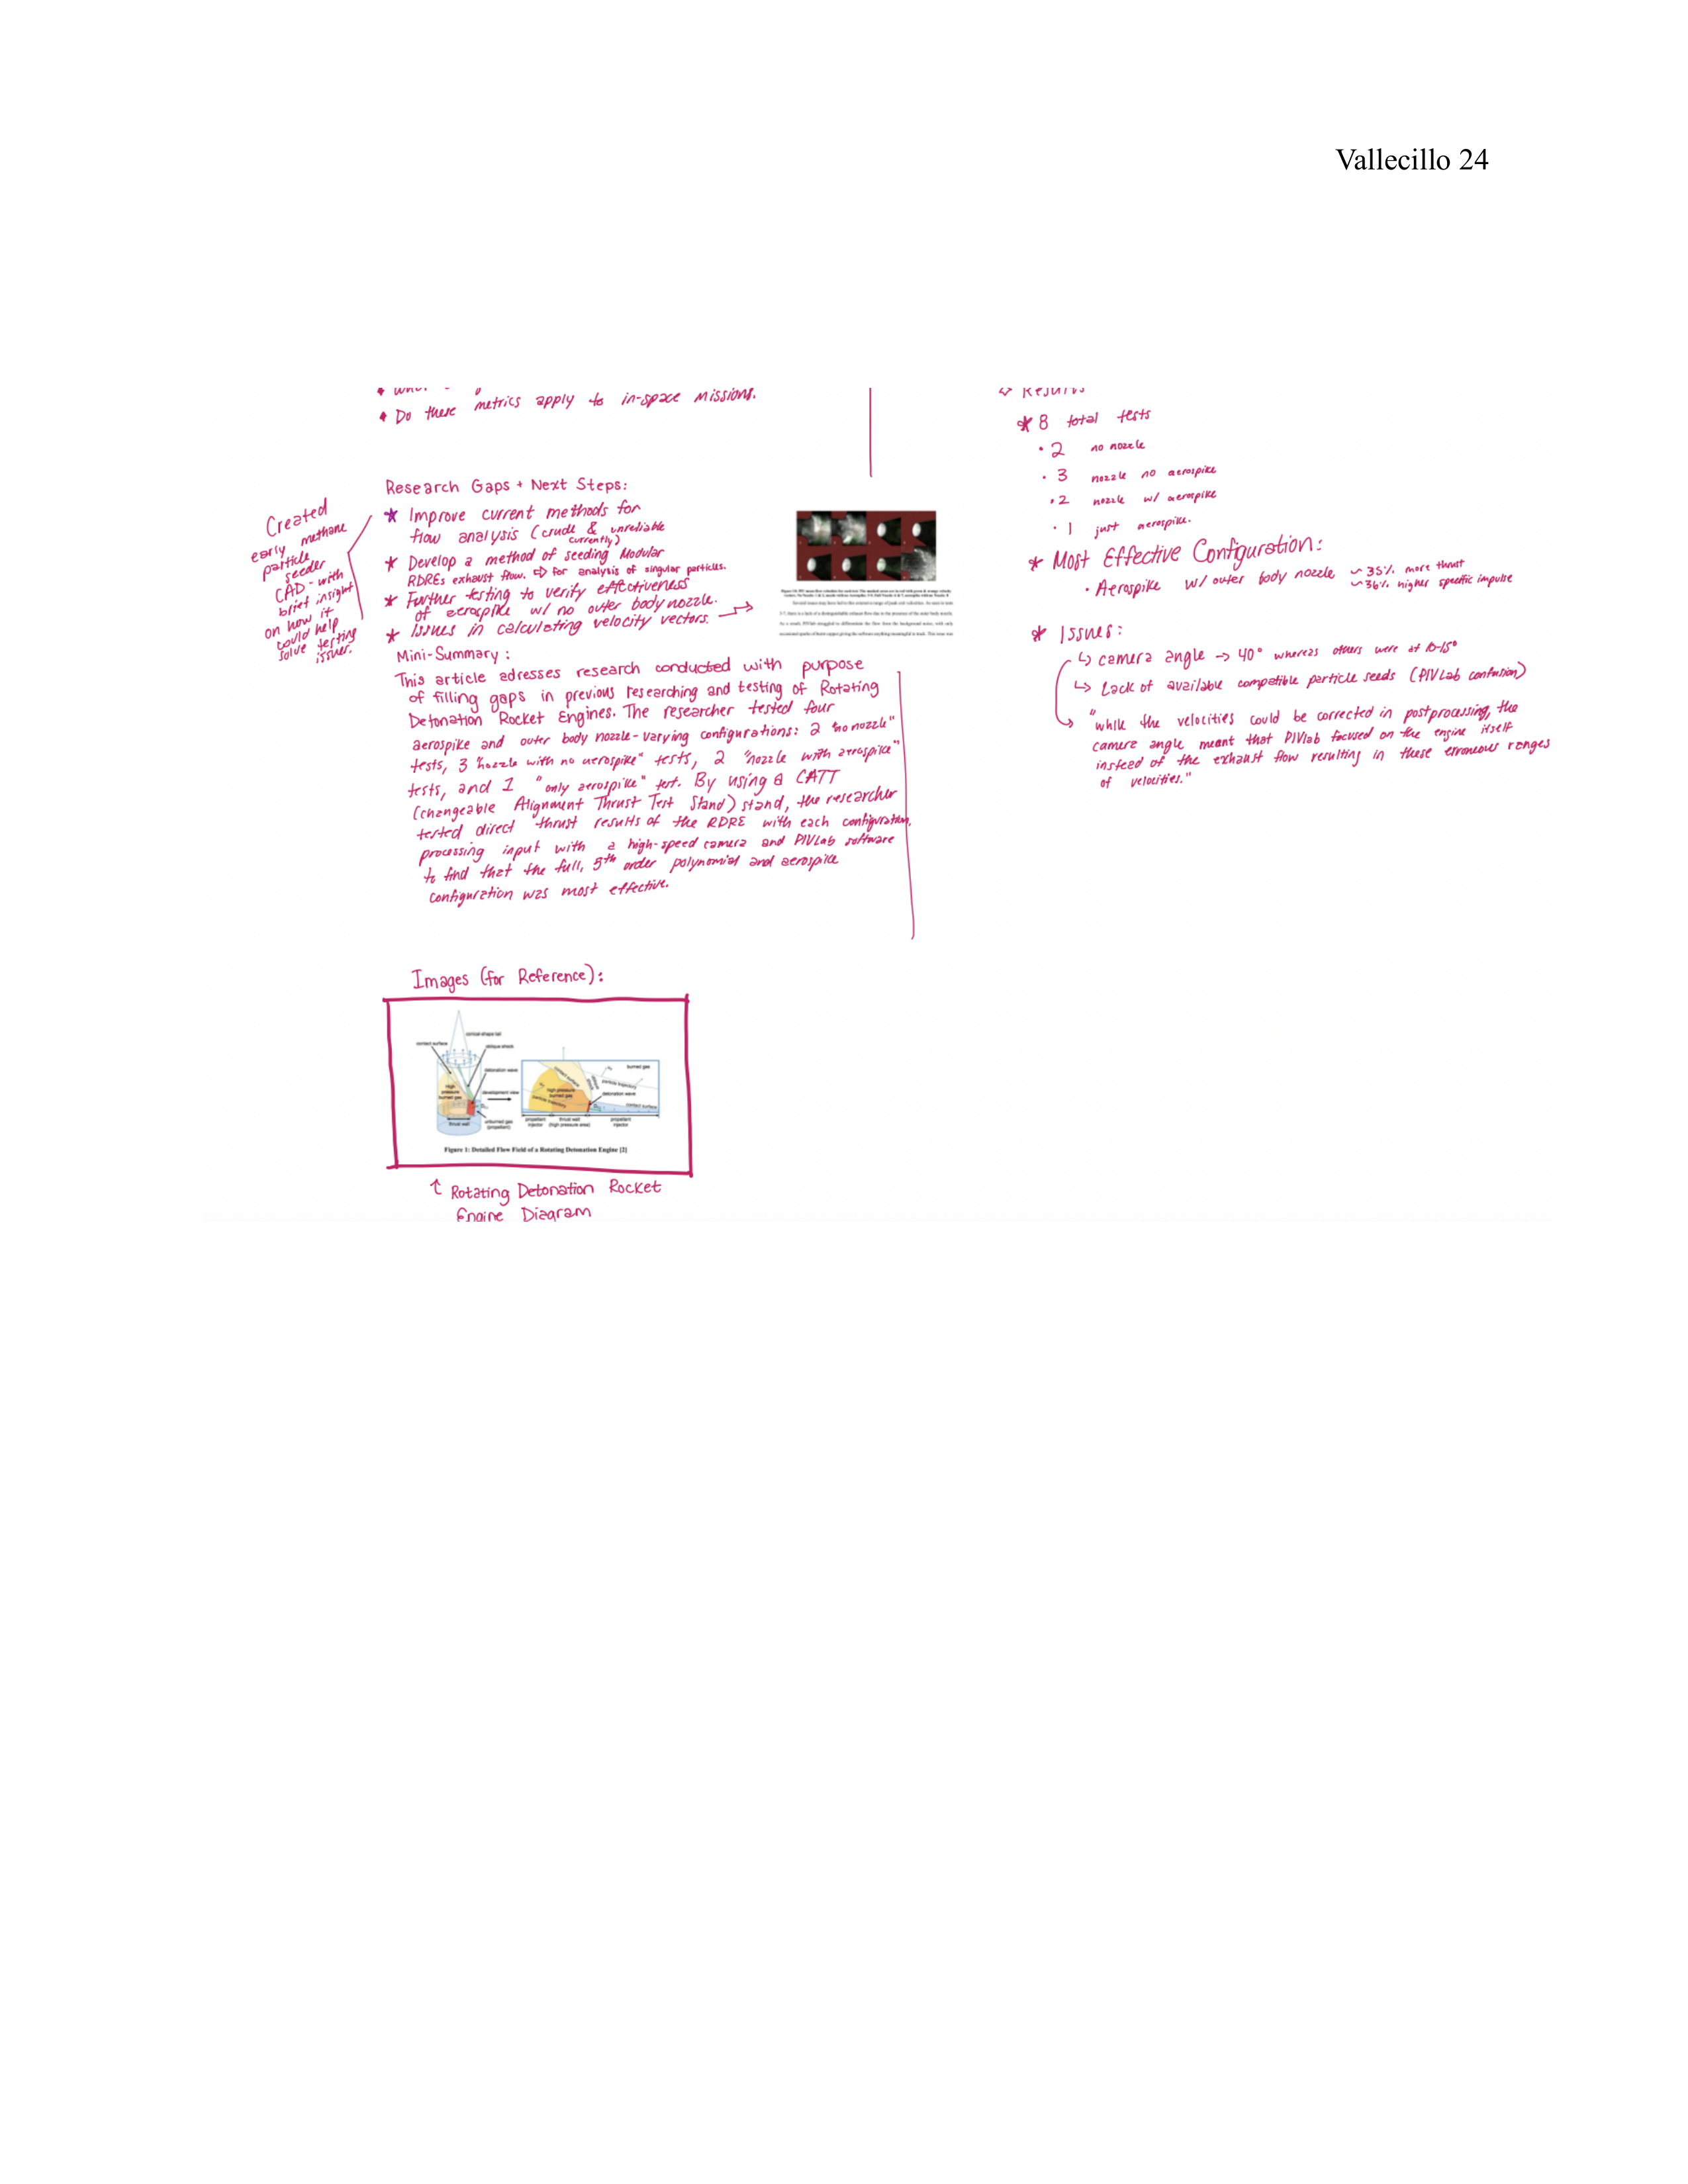 Vallecillo 24
• Do these metrics apply to in-space missions.
Research Gaps + Next Steps:
* Improve current methods for
flow analysis (crude & unreliable
currently)
* Develop a method of seeding Modular
RDREs exhaust flow. ⇨ for analysis of singular particles.
* Further testing to verify effectiveness
of aerospike w/ no outer body nozzle.
* Issues in calculating velocity vectors. →
Created
early methane
particle
seeder
CAD - with
brief insight
on how it
could help
solve testing
issues.
Mini-Summary:
This article adresses research conducted with purpose
of filling gaps in previous researching and testing of Rotating
Detonation Rocket Engines. The researcher tested four
aerospike and outer body nozzle-varying configurations: 2 "no nozzle"
tests, 3 "nozzle with no aerospike" tests, 2 "nozzle with aerospike"
tests, and 1 "only aerospike" test. By using a CATT
(changeable Alignment Thrust Test Stand) stand, the researcher
tested direct thrust results of the RDRE with each configuration,
processing input with a high-speed camera and PIVLab software
to find that the full, 5th order polynomial and aerospike
configuration was most effective.
Images (for Reference):
conical-shape tail
contact surface
oblique shock
detonation wave
high
pressure
burned gas
development view
thrust wall
unburned gas
(propellant)
burned gas
contact surface
particle trajectory
high pressure
burned gas
detonation wave
particle trajectory
contact surface
propellant
injector
thrust wall
(high pressure area)
propellant
injector
Figure 1: Detailed Flow Field of a Rotating Detonation Engine [2]
↑ Rotating Detonation Rocket
Engine Diagram
Results
* 8 total tests
• 2 no nozzle
• 3 nozzle no aerospike
• 2 nozzle w/ aerospike
• 1 just aerospike.
* Most Effective Configuration:
• Aerospike w/ outer body nozzle ~ 35% more thrust
~ 36% higher specific impulse
* Issues:
↳ camera angle → 40° whereas others were at 10-15°
↳ Lack of available compatible particle seeds (PIVLab confusion)
"while the velocities could be corrected in postprocessing, the
camera angle meant that PIVlab focused on the engine itself
instead of the exhaust flow resulting in these erroneous ranges
of velocities."